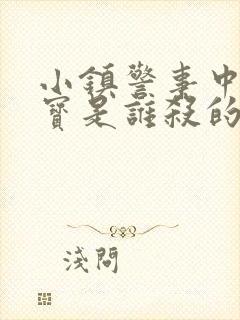 小鎮警事中
寶是誰殺的
淺問